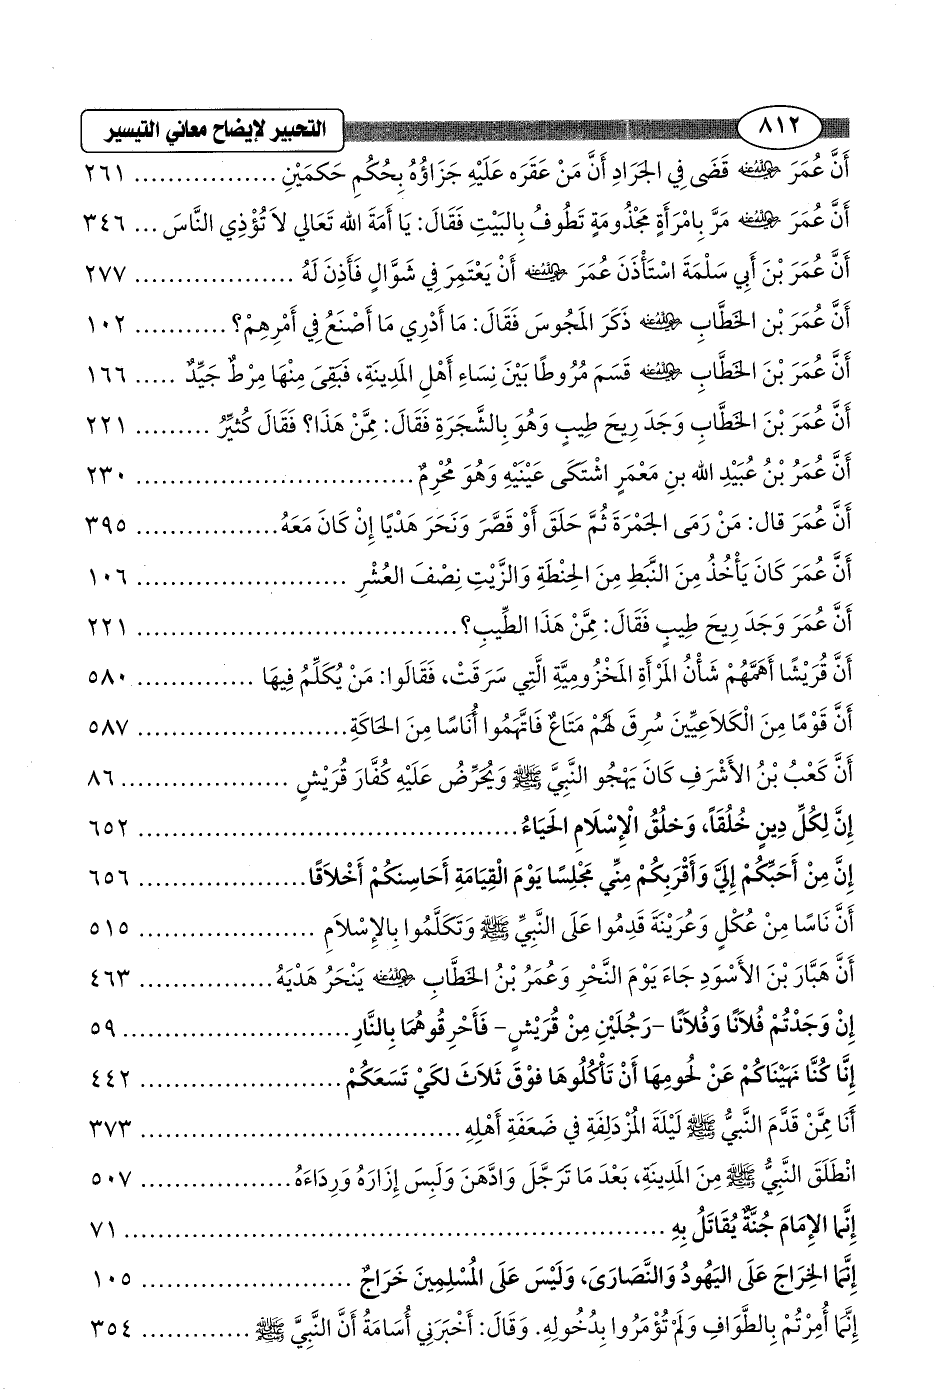 ٨١٢ التحبير لإيضاح معاني التيسير
أَنَّ عُمَرَ رضي الله عنه قَضَى فِي الجَرَادِ أَنَّ مَنْ عَقَرَه عَلَيْهِ جَزَاؤُهُ بِحُكُمِ حَكَمَيْنِ ................. ٢٦١
أَنَّ عُمَرَ رضي الله عنه مَرَّ بِامْرَأَةٍ مَجْذُومَةٍ تَطُوفُ بِالبَيْتِ فَقَالَ: يَا أَمَةَ الله تَعَالي لاَ تُؤْذِي النَّاسَ ... ٣٤٦
أَنَّ عُمَرَ بْنَ أَبِي سَلْمَةَ اسْتَأْذَنَ عُمَرَ رضي الله عنه أَنْ يَعْتَمِرَ فِي شَوَّالٍ فَأَذِنَ لَهُ ................... ٢٧٧
أَنَّ عُمَرَ بْن الخَطَّابِ رضي الله عنه ذَكَرَ المَجُوسَ فَقَالَ: مَا أَدْرِي مَا أَصْنَعُ فِي أَمْرِهِمْ؟ ........... ١٠٢
أَنَّ عُمَرَ بْنَ الخَطَّابِ رضي الله عنه قَسَمَ مُرُوطًا بَيْنَ نِسَاءِ أَهْلِ المَدِينَةِ، فَبَقِىَ مِنْهَا مِرْطٌ جَيِّدٌ ..... ١٦٦
أَنَّ عُمَرَ بْنَ الخَطَّابِ وَجَدَ رِيحَ طِيبٍ وَهُوَ بِالشَّجَرَةِ فَقَالَ: مِمَّنْ هَذَا؟ فَقَالَ كُثَيِّرُ ......... ٢٢١
أَنَّ عُمَرُ بْنُ عُبَيْدِ الله بنِ مَعْمَرٍ اشْتَكَى عَيْنَيْهِ وَهُوَ مُحْرِمٌ.................................. ٢٣٠
أَنَّ عُمَرَ قال: مَنْ رَمَى الجَمْرَةَ ثُمَّ حَلَقَ أَوْ قَصَّرَ وَنَحَرَ هَدْيًا إِنْ كَانَ مَعَهُ.................. ٣٩٥
أَنَّ عُمَرَ كَانَ يَأْخُذُ مِنَ النَّبَطِ مِنَ الحِنْطَةِ وَالزَّيْتِ نِصْفَ العُشْرِ .......................... ١٠٦
أَنَّ عُمَرَ وَجَدَ رِيحَ طِيبٍ فَقَالَ: مِمَّنْ هَذَا الطِّيبِ؟....................................... ٢٢١
أَنَّ قُرَيْشًا أَهَمَّهُمْ شَأْنُ المَرْأَةِ المَخْزُومِيَّةِ الَّتِي سَرَقَتْ، فَقَالُوا: مَنْ يُكَلِّمُ فِيهَا .............. ٥٨٠
أَنَّ قَوْمًا مِنَ الْكَلاَعِيِّينَ سُرِقَ لَهُمْ مَتَاعٌ فَاتَّهَمُوا أُنَاسًا مِنَ الحَاكَةِ.......................... ٥٨٧
أَنَّ كَعْبُ بْنُ الأَشْرَفِ كَانَ يَهْجُو النَّبِيَّ ﷺ وَيُحَرِّضُ عَلَيْهِ كُفَّارَ قُرَيْشٍ ..................... ٨٦
إِنَّ لِكُلِّ دِينٍ خُلُقَاً، وَخلُقُ الْإِسْلَامِ الحَيَاءُ.............................................. ٦٥٢
إِنَّ مِنْ أَحَبِّكُمْ إِلَيَّ وَأَقْرَبِكُمْ مِنِّي مَجْلِسًا يَوْمَ الْقِيَامَةِ أَحَاسِنَكُمْ أَخْلَاقًا.................... ٦٥٦
أَنَّ نَاسًا مِنْ عُكْلٍ وَعُرَيْنَةَ قَدِمُوا عَلَى النَّبِيِّ ﷺ وَتَكَلَّمُوا بِالإِسْلاَمِ ......................... ٥١٥
أَنَّ هَبَّارَ بْنَ الأَسْوَدِ جَاءَ يَوْمَ النَّحْرِ وَعُمَرُ بْنُ الخَطَّابِ رضي الله عنه يَنْحَرُ هَدْيَهُ ................ ٤٦٣
إِنْ وَجَدْتُمْ فُلاَنًا وَفُلاَنًا -رَجُلَيْنِ مِنْ قُرَيْشٍ- فَأَحْرِقُوهُمَا بِالنَّارِ............................ ٥٩
إِنَّا كُنَّا نَهَيْنَاكُمْ عَنْ لحُومِهَا أَنْ تَأْكُلُوهَا فوْقَ ثَلاَثَ لكَيْ تَسَعَكُمْ......................... ٤٤٢
أَنَا مِمَّنْ قَدَّمَ النَّبِيُّ ﷺ لَيْلَةَ المُزْدَلِفَةِ فِي ضَعَفَةِ أَهْلِهِ....................................... ٣٧٣
انْطَلَقَ النَّبِيُّ ﷺ مِنَ المَدِينَةِ، بَعْدَ مَا تَرَجَّلَ وَادَّهَنَ وَلَبِسَ إِزَارَهُ وَرِدَاءَهُ.................. ٥٠٧
إِنَّمَا الإِمَامَ جُنَّةٌ يُقَاتَلُ بِهِ ................................................................. ٧١
إِنَّمَا الخِرَاجَ عَلَى اليَهُودُ وَالنَّصَارَىَ، وَلَيْسَ عَلَى المُسْلِمِينَ خَرَاجٌ ......................... ١٠٥
إِنَّمَا أُمِرْتُمْ بِالطَّوَافِ وَلَمْ تُؤْمَرُوا بِدُخُولِهِ. وَقَالَ: أَخْبَرَنِي أُسَامَةُ أَنَّ النَّبِيَّ ﷺ ............. ٣٥٤